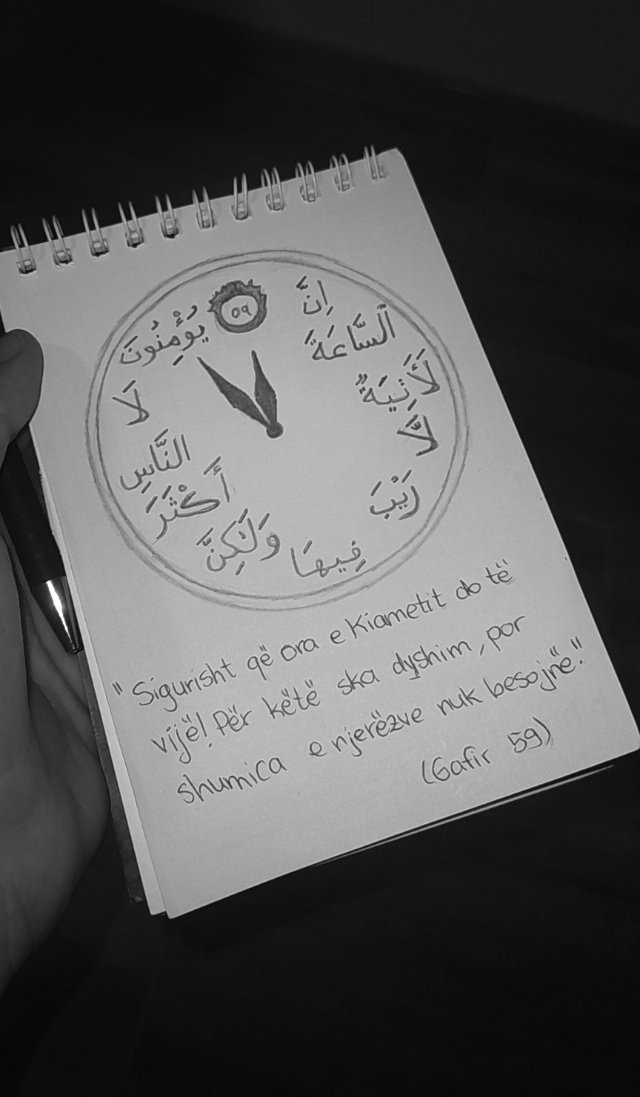 09
إِنَّ
ٱلسَّاعَةَ
لَأَتِيَةٌ
لَّا
رَيْبَ
فِيهَا
وَلَٰكِنَّ
أَكْثَرَ
النَّاسِ
لَا
يُؤْمِنُونَ
"Sigurisht që ora e Kiametit do të
vijë! Për këtë ska dyshim, por
shumica e njerëzve nuk besojnë."
(Gafir 59)